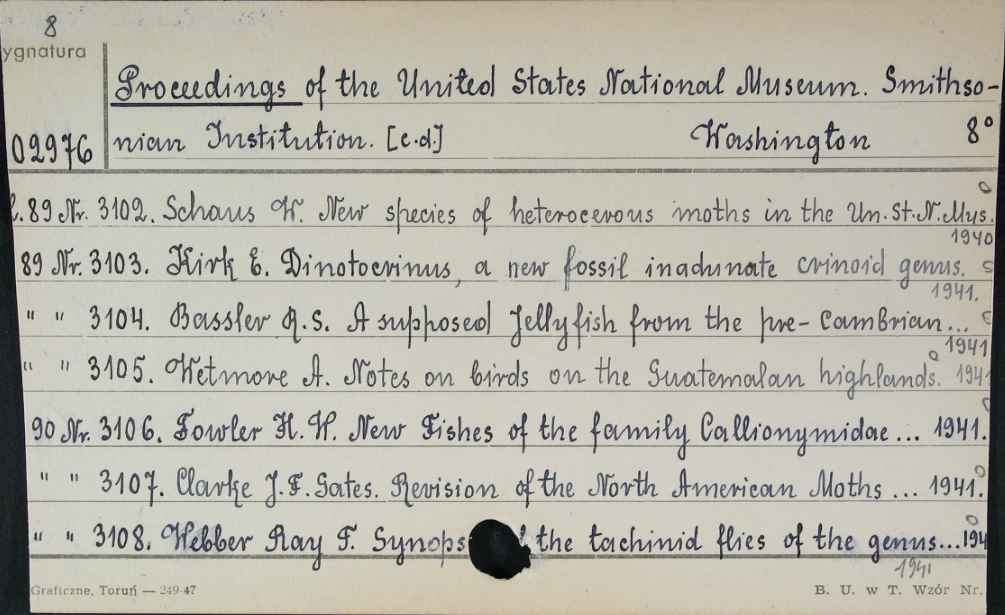 8
ygnatura
Proceedings of the United States National Museum. Smithso-
02976 nian Institution. [c.d.] Washington 8°
t.89 Nr. 3102. Schaus W. New species of heterocerous moths in the Un.St.N.Mus.
1940
89 Nr. 3103. Kirk E. Dinotocrinus, a new fossil inadunate crinoid genus.
1941.
" " 3104. Bassler R.S. A supposed Jellyfish from the pre-Cambrian...
1941
" " 3105. Wetmore A. Notes on birds on the Guatemalan highlands. 1941
90 Nr. 3106. Fowler H.W. New Fishes of the family Callionymidae... 1941.
" " 3107. Clarke J.F.Gates. Revision of the North American Moths ... 1941.
" " 3108. Webber Ray F. Synops the tachinid flies of the genus...194
1941
Graficzne, Toruń — 249-47 B. U. w T. Wzór Nr.